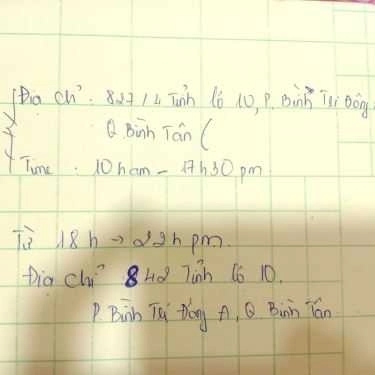 Địa chỉ : 827/4 Tỉnh lộ 10, P. Bình Trị Đông
Q. Bình Tân (
Time : 10h am - 17h30 pm.
Từ 18h → 22h pm.
Địa chỉ : 842 Tỉnh lộ 10.
P. Bình Trị Đông A, Q. Bình Tân.